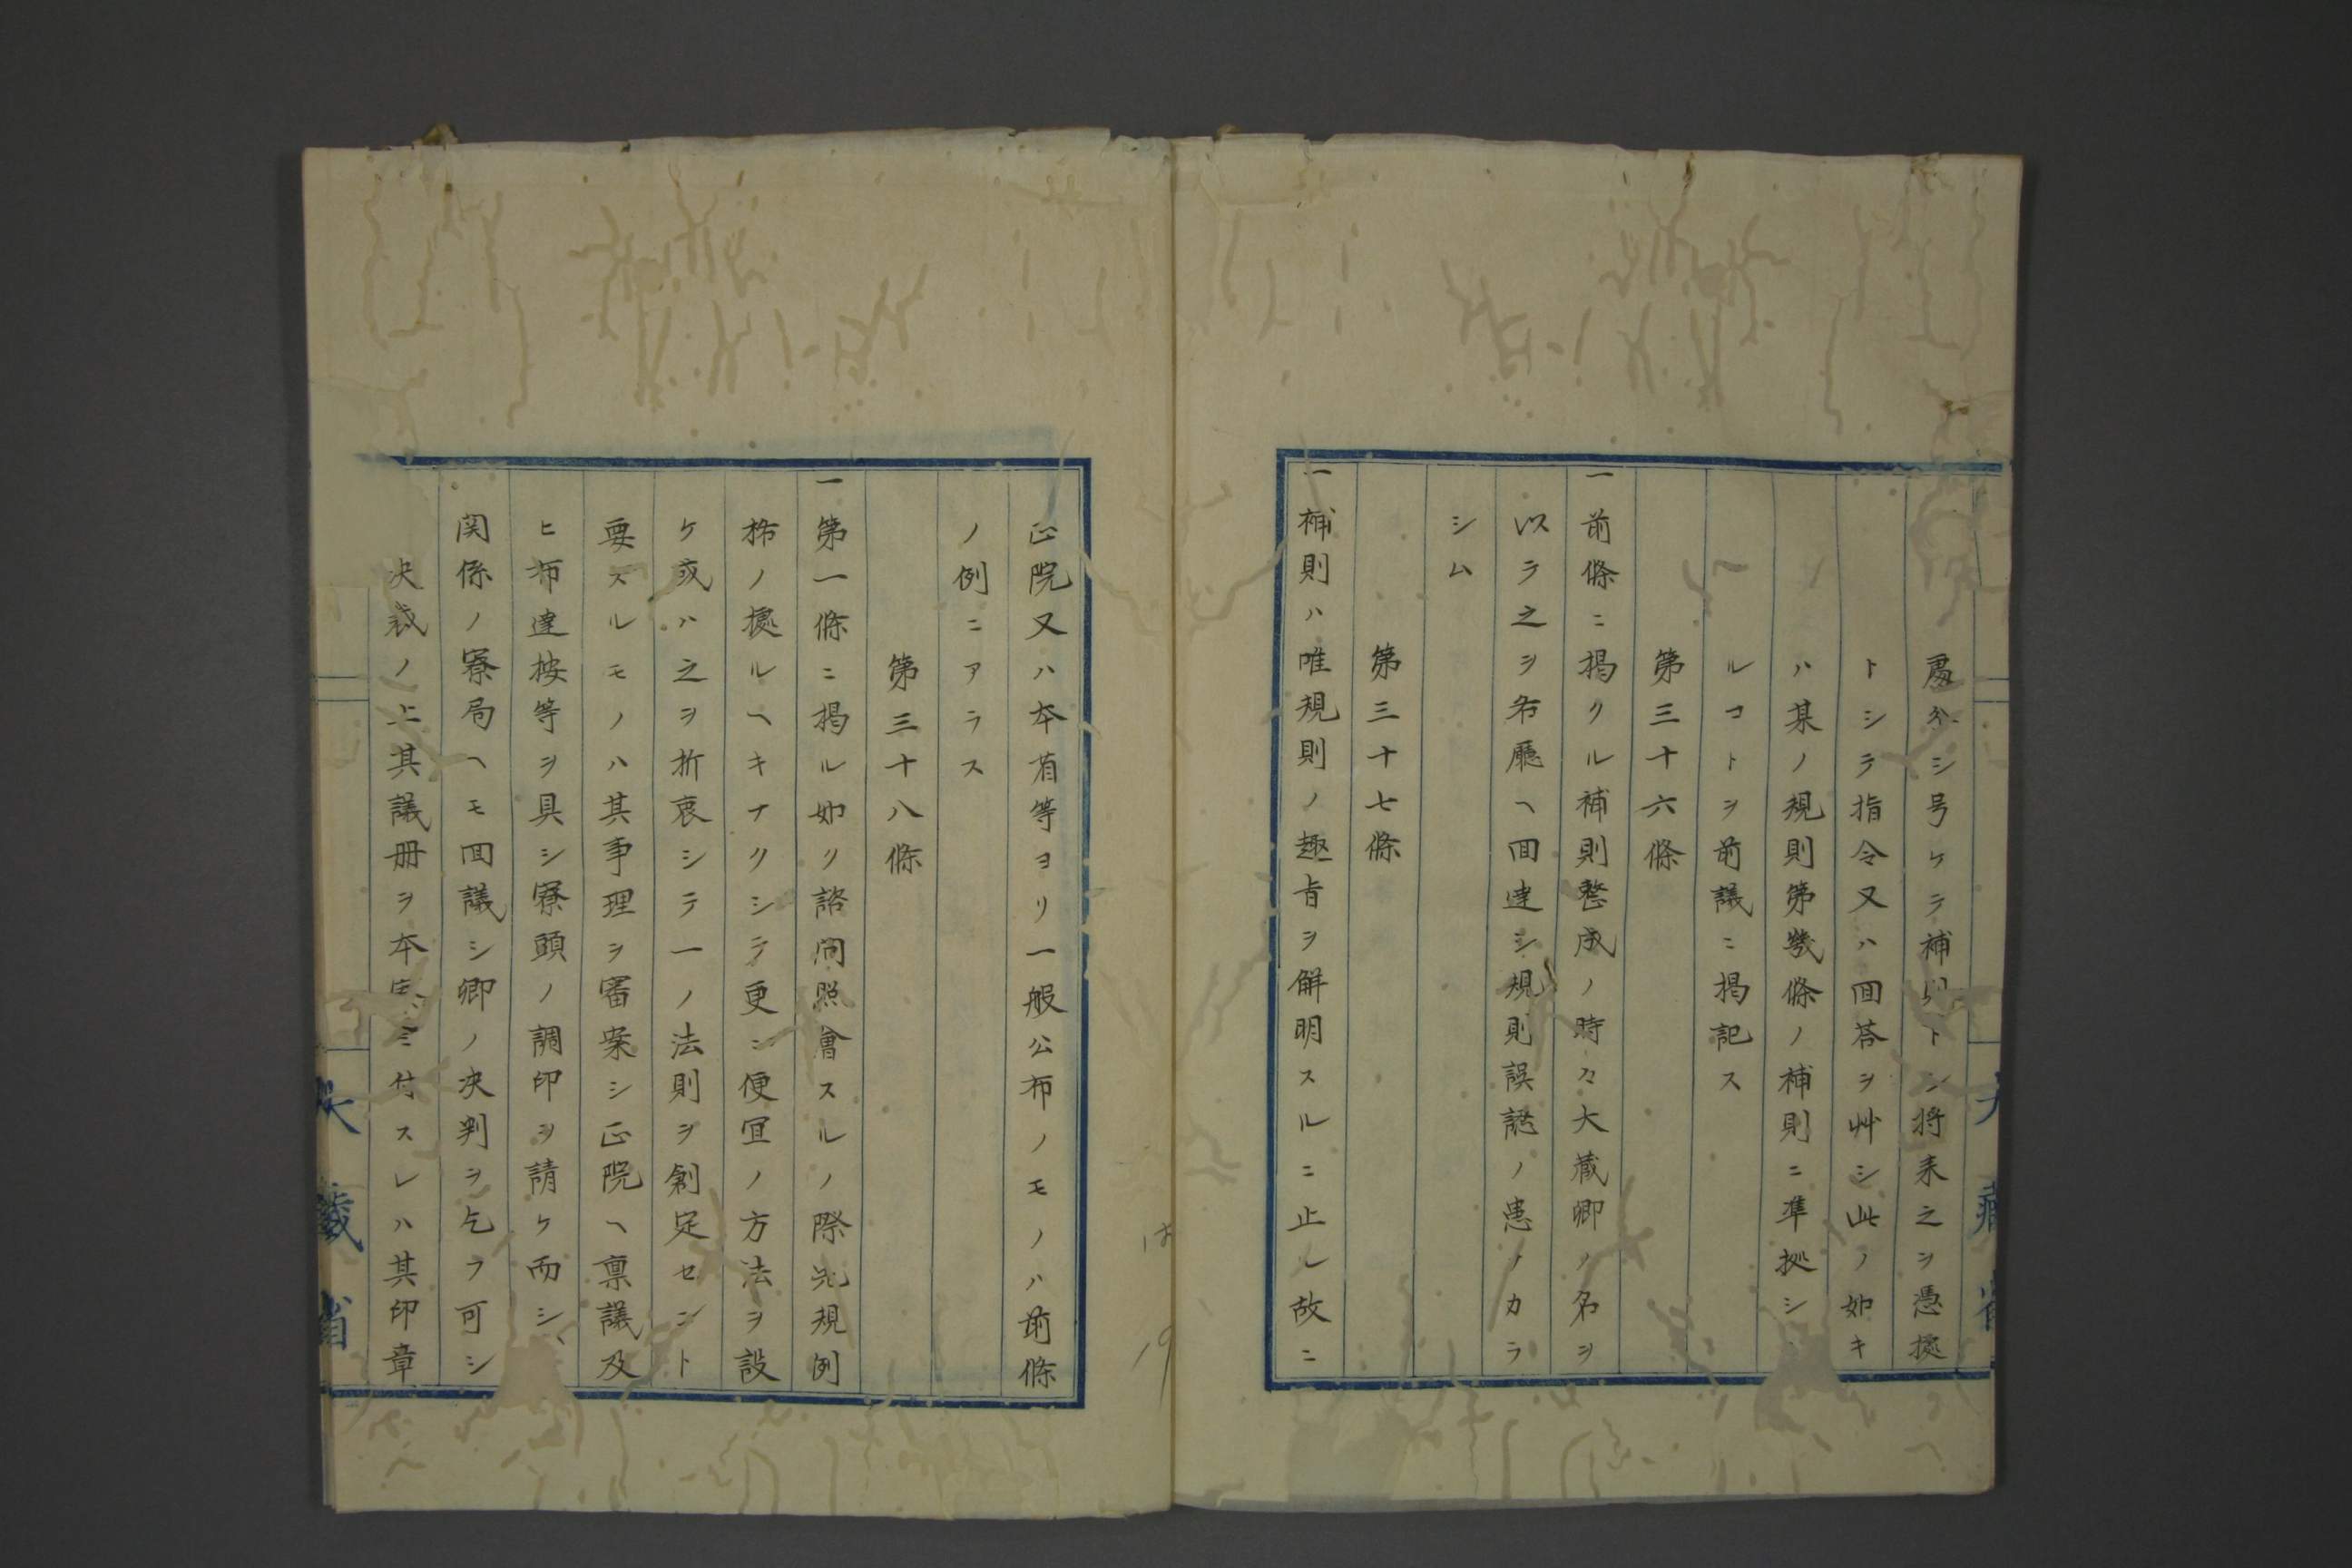 處分シ号ケテ補則トシ将来之ヲ憑據
トシテ指令又ハ回答ヲ艸シ此ノ如キ
ハ某ノ規則第幾條ノ補則ニ準拠シ
ルコトヲ前議ニ掲記ス
第三十六條
一前條ニ掲クル補則整成ノ時々大蔵卿ノ名ヲ
以テ之ヲ各廳ヘ回達シ規則誤認ノ患ナカラ
シム
第三十七條
一補則ハ唯規則ノ趣旨ヲ解明スルニ止レ故ニ
正院又ハ本省等ヨリ一般公布ノモノハ前條
ノ例ニアラス
第三十八條
一第一條ニ掲ル如ク諮問照會スルノ際先規例
格ノ據ルヘキナクシテ更ニ便宜ノ方法ヲ設
ケ或ハ之ヲ折衷シテ一ノ法則ヲ創定セント
要スルモノハ其事理ヲ審案シ正院ヘ禀議及
ヒ布達按等ヲ具シ寮頭ノ調印ヲ請ケ而シ
関係ノ寮局ヘモ回議シ卿ノ決判ヲ乞フ可シ
決裁ノ上其議冊ヲ本寮ニ付スレハ其印章
大藏省